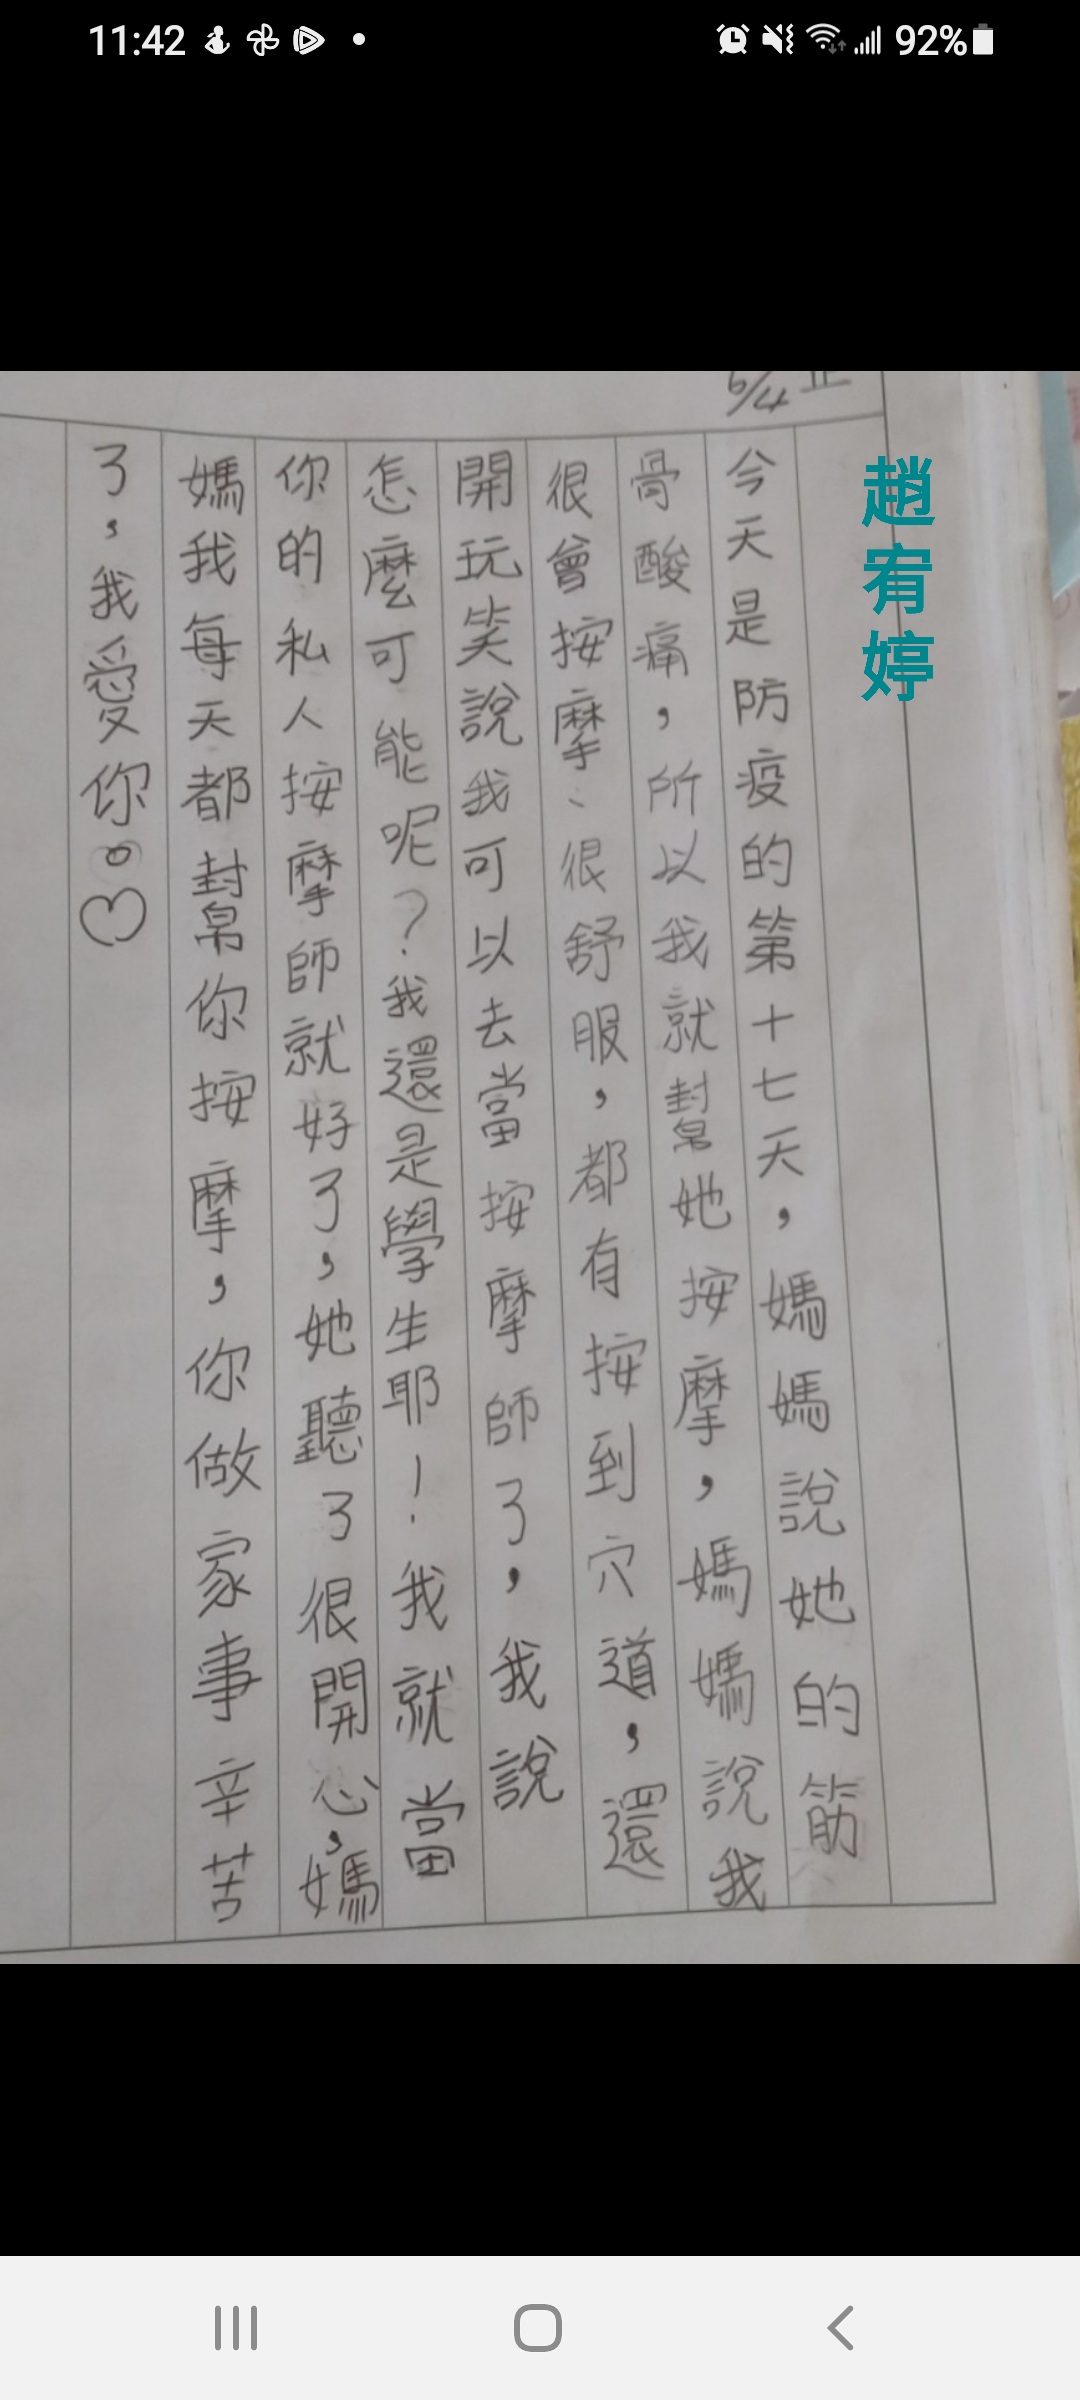 11:42
92%
趙宥婷
6/4
今天是防疫的第十七天，媽媽說她的筋
骨酸痛，所以我就幫她按摩，媽媽說我
很會按摩、很舒服，都有按到穴道，還
開玩笑說我可以去當按摩師了，我說
怎麼可能呢？我還是學生耶！我就當
你的私人按摩師就好了，她聽了很開心，媽
媽我每天都幫你按摩，你做家事辛苦
了，我愛你。